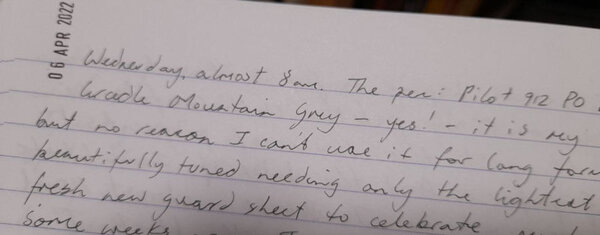 06 APR 2022
Wednesday, almost 8am. The pen: Pilot 912 PO
Cradle Mountain Grey – yes! – it is my
but no reason I can't use it for long form
beautifully tuned needing only the lightest
fresh new guard sheet to celebrate
some weeks